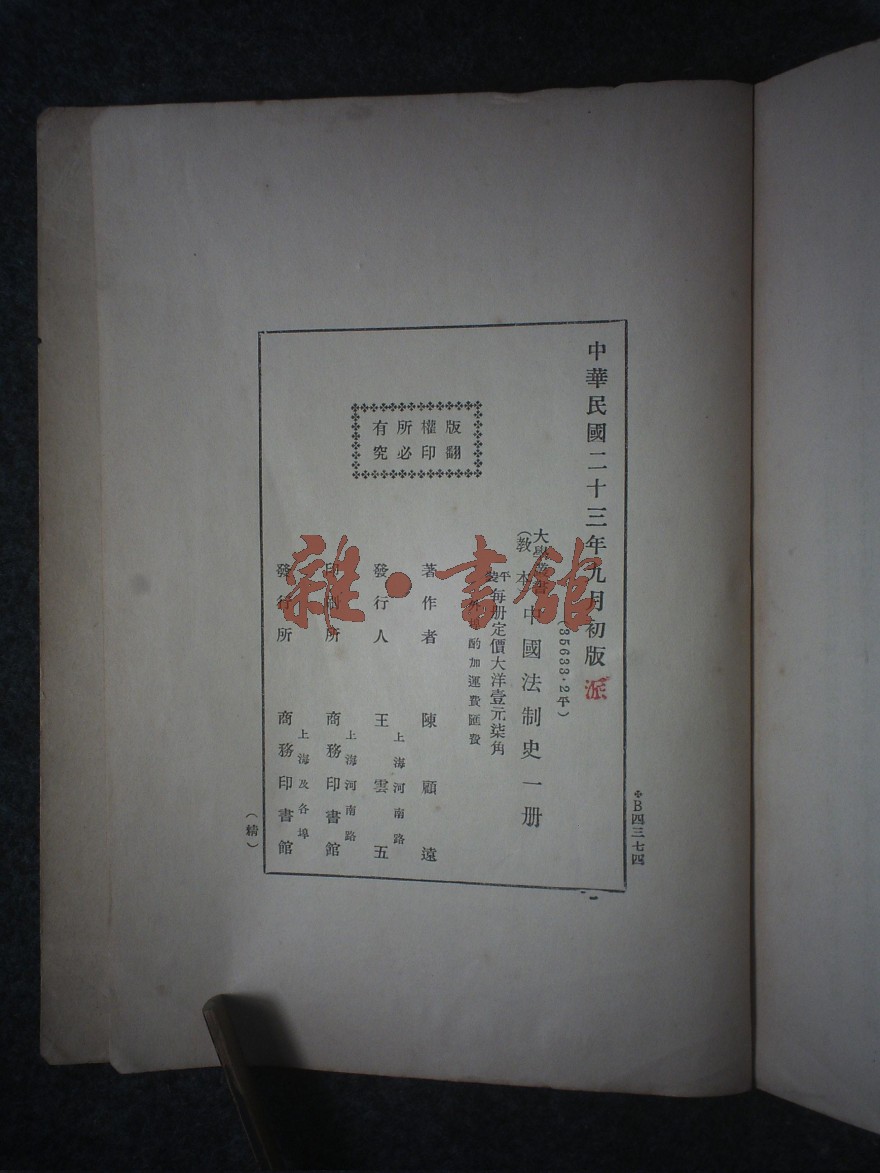 中華民國二十三年九月初版
派
(35633·2平)
大學叢書
(教本)
中國法制史一册
平裝
每册定價大洋壹元柒角
外埠酌加運費匯費
版權所有
翻印必究
著作者 陳顧遠
上海河南路
發行人 王雲五
上海河南路
印刷所 商務印書館
上海及各埠
發行所 商務印書館
(精)
B四三七四
雜·書館